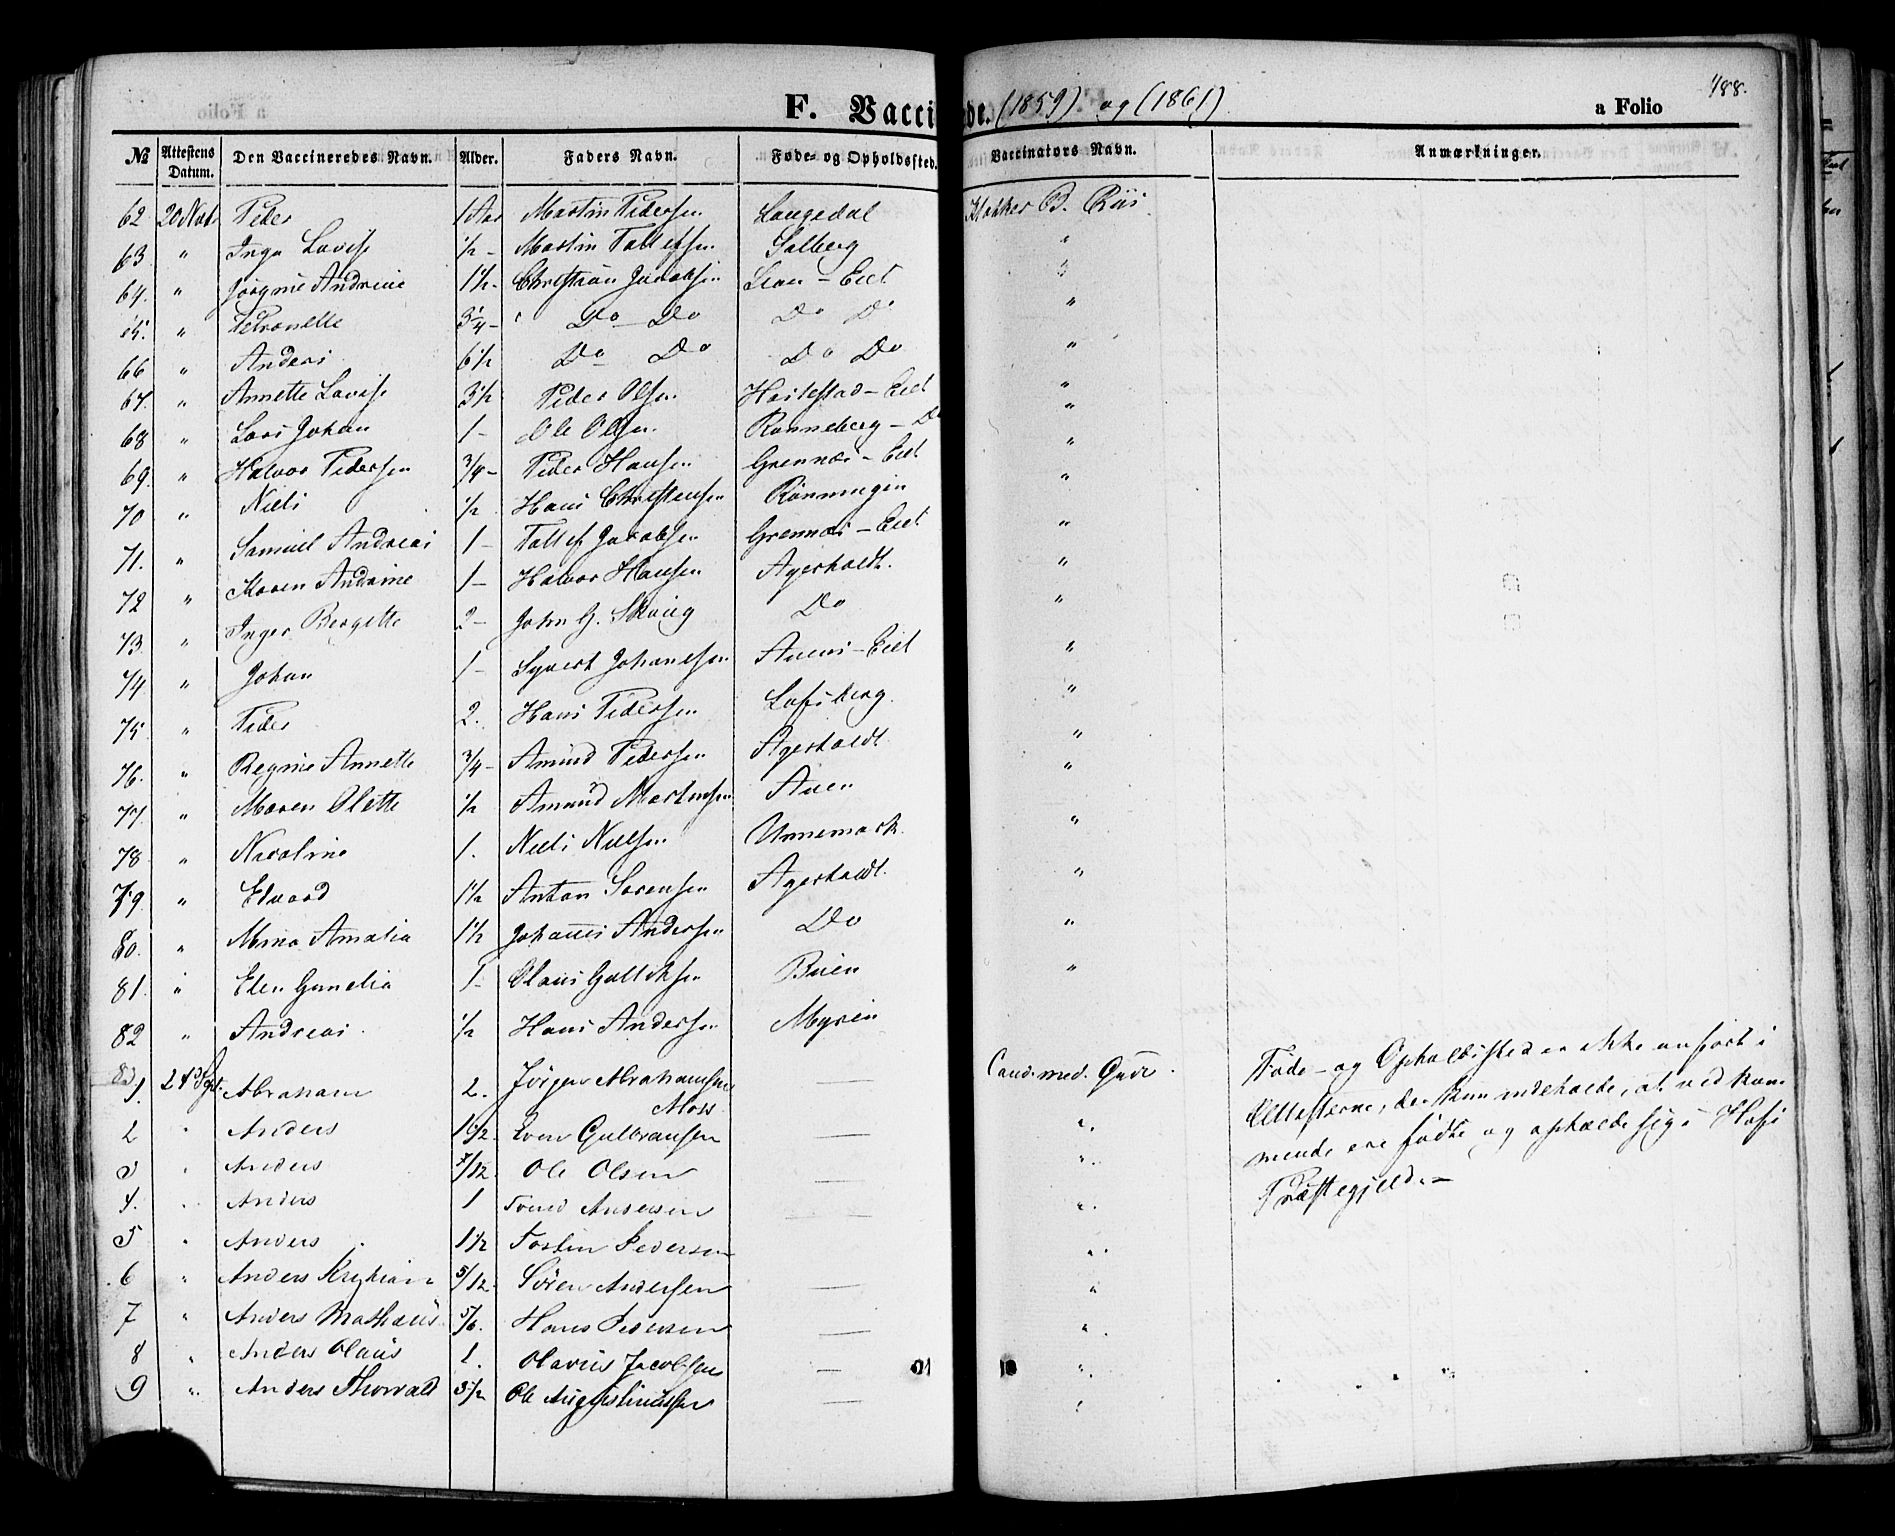 188.
F. Vaccinerede. (1859) og (1861) a Folio
№ Attestens Datum. Den Vaccineredes Navn. Alder. Faders Navn. Føde- og Opholdssted. Vaccinators Navn. Anmærkninger.
62 20 Peder 1 Aar Martin Pedersen Langedal Klokker B. Riis
63 " Inga Lovise 1/2 - Martin Tallefsen Solberg "
64. " Jørgine Andreine 1 1/2 - Christian Jacobsen - Eiet "
65. " Petronelle 3 1/4 - Do - Do Do Do "
66 " Anders 6 1/2 Do - Do Do Do "
67. " Annette Lovise 3 1/2 Peder Olsen - Eiet "
68 " Lars Johan 1 - Ole Olsen Ronneberg - Do "
69. " Halvor Pedersen 3/4 - Peder Hansen Grennes - Eiet "
70 " Niels 1/2 Hans Christensen Rønningen "
71. " Samuel Andreas 1 - Tallef Jacobsen Grennes - Eiet "
72 " Maren Andrine 1 - Halvor Hansen Agerholdt. "
73. " Inger Bergitte 2 - John G. Do "
74 " Johan 1 - Syvert Johansen - Eiet "
75 " Peder 2. Hans Pedersen Lofsberg "
76. " Regine Annette 3/4 - Amund Pedersen Agerholdt "
77. " Maren Olette 1/2 Amund Martinsen "
78 " Nicoline 1. Niels Nielsen Unnemark. "
79. " Edvard 1 1/2 Anton Sorensen Agerholdt. "
80. " Mina Amalia 1 1/2 Johannes Andersen Do "
81. " Elen Gunelia 1 - Olaus Gulliksen "
82 " Andreas. 1/2 Hans Andersen Myren
1. 24 Spt. Abraham 2. Jörgen Abrahamsen — Cand. med. Føde- og Opholdssted er ikke anført i
Moss
Attesterne, der kun indeholde, at vedkom-
2 " Anders Gulbransen — "
mende ere fødte og opholde sig i
3 " Anders 7/12. Ole Olsen — "
Præstegjeld. -
4. " Anders 1 Andersen — "
5 " Anders 1 1/2 Pedersen — "
6 " Anders 5/12. Sören Andersen — "
7 " Anders Mathæus 5/6. Hans Pedersen — "
8 " Anders Olaus 1. Olavus Jacobsen — "
9 " Anders Thorvald Ole Augustinussen — "